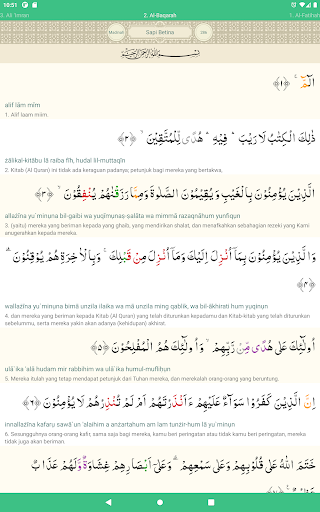 10:51
3. Ali 'Imran 2. Al-Baqarah 1. Al-Fatihah
Madinah Sapi Betina 286
بِسْمِ اللّٰهِ الرَّحْمٰنِ الرَّحِيْمِ
الۤمّۤ ۚ ﴿١﴾
alif lām mīm
1. Alif laam miim.
ذٰلِكَ الْكِتٰبُ لَا رَيْبَ ۛ فِيْهِ ۛ هُدًى لِّلْمُتَّقِيْنَ ﴿٢﴾
żālikal-kitābu lā raiba fīh, hudal lil-muttaqīn
2. Kitab (Al Quran) ini tidak ada keraguan padanya; petunjuk bagi mereka yang bertakwa,
الَّذِيْنَ يُؤْمِنُوْنَ بِالْغَيْبِ وَيُقِيْمُوْنَ الصَّلٰوةَ وَمِمَّا رَزَقْنٰهُمْ يُنْفِقُوْنَ ۙ ﴿٣﴾
allażīna yu`minụna bil-gaibi wa yuqīmụnaṣ-ṣalāta wa mimmā razaqnāhum yunfiqụn
3. (yaitu) mereka yang beriman kepada yang ghaib, yang mendirikan shalat, dan menafkahkan sebahagian rezeki yang Kami
anugerahkan kepada mereka.
وَالَّذِيْنَ يُؤْمِنُوْنَ بِمَآ اُنْزِلَ اِلَيْكَ وَمَآ اُنْزِلَ مِنْ قَبْلِكَ ۚ وَبِالْاٰخِرَةِ هُمْ يُوْقِنُوْنَ ۗ
﴿٤﴾
wallażīna yu`minụna bimā unzila ilaika wa mā unzila ming qablik, wa bil-ākhirati hum yụqinụn
4. dan mereka yang beriman kepada Kitab (Al Quran) yang telah diturunkan kepadamu dan Kitab-kitab yang telah diturunkan
sebelummu, serta mereka yakin akan adanya (kehidupan) akhirat.
اُولٰۤىِٕكَ عَلٰى هُدًى مِّنْ رَّبِّهِمْ ۙ وَاُولٰۤىِٕكَ هُمُ الْمُفْلِحُوْنَ ﴿٥﴾
ulā`ika 'alā hudam mir rabbihim wa ulā`ika humul-mufliḥụn
5. Mereka itulah yang tetap mendapat petunjuk dari Tuhan mereka, dan merekalah orang-orang yang beruntung.
اِنَّ الَّذِيْنَ كَفَرُوْا سَوَاۤءٌ عَلَيْهِمْ ءَاَنْذَرْتَهُمْ اَمْ لَمْ تُنْذِرْهُمْ لَا يُؤْمِنُوْنَ ﴿٦﴾
innallażīna kafarụ sawā`un 'alaihim a anżartahum am lam tunżir-hum lā yu`minụn
6. Sesungguhnya orang-orang kafir, sama saja bagi mereka, kamu beri peringatan atau tidak kamu beri peringatan, mereka
tidak juga akan beriman.
خَتَمَ اللّٰهُ عَلٰى قُلُوْبِهِمْ وَعَلٰى سَمْعِهِمْ ۗ وَعَلٰٓى اَبْصَارِهِمْ غِشَاوَةٌ وَّلَهُمْ عَذَابٌ